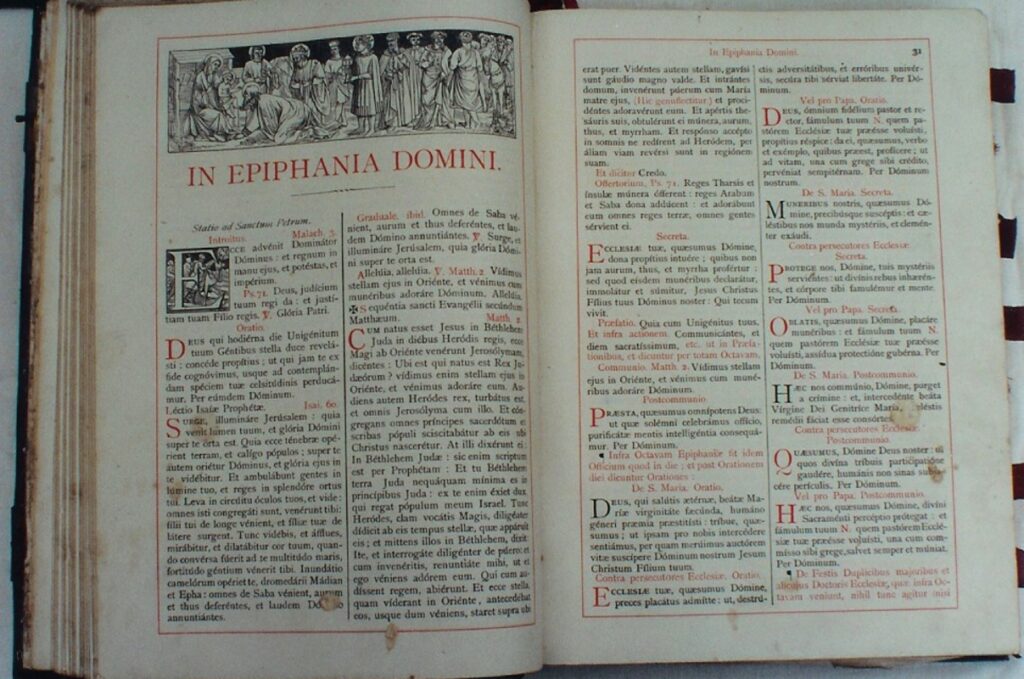 IN EPIPHANIA DOMINI.
Statio ad Sanctum Petrum.
Introitus. Malach. 3.
ECCE advénit Dominátor
Dóminus : et regnum in
manu ejus, et potéstas, et
impérium.
Ps. 71. Deus, judícium
tuum regi da : et justí-
tiam tuam Fílio regis. ℣. Glória Patri.
Oratio.
DEUS qui hodiérna die Unigénitum
tuum Géntibus stella duce revelá-
sti : concéde propítius ; ut qui jam te ex
fide cognóvimus, usque ad contemplán-
dam spéciem tuæ celsitúdinis perducá-
mur. Per eúmdem Dóminum.
Léctio Isaíæ Prophétæ. Isai. 60.
SURGE, illumináre Jerúsalem : quia
venit lumen tuum, et glória Dómini
super te orta est. Quia ecce ténebræ opé-
rient terram, et calígo pópulos ; super te
autem oriétur Dóminus, et glória ejus in
te vidébitur. Et ambulábunt gentes in
lúmine tuo, et reges in splendóre ortus
tui. Leva in circúitu óculos tuos, et vide :
omnes isti congregáti sunt, venérunt tibi:
fílii tui de longe vénient, et fíliæ tuæ de
látere surgent. Tunc vidébis, et áfflues,
mirábitur, et dilatábitur cor tuum, quan-
do convérsa fúerit ad te multitúdo maris,
fortitúdo géntium vénerit tibi. Inundátio
camelórum opériet te, dromedárii Mádian
et Epha : omnes de Saba vénient, aurum
et thus deferéntes, et laudem Dómino
annuntiántes.
Graduale. ibid. Omnes de Saba vé-
nient, aurum et thus deferéntes, et lau-
dem Dómino annuntiántes. ℣. Surge, et
illumináre Jerúsalem, quia glória Dómi-
ni super te orta est.
Allelúia, allelúia. ℣. Matth. 2. Vídimus
stellam ejus in Oriénte, et vénimus cum
munéribus adoráre Dóminum. Allelúia.
✠ Sequéntia sancti Evangélii secúndum
Matthæum. Matth. 2.
CUM natus esset Jesus in Béthlehem
Juda in diébus Heródis regis, ecce
Magi ab Oriénte venérunt Jerosólymam,
dicéntes : Ubi est qui natus est Rex Ju-
dæórum ? vídimus enim stellam ejus in
Oriénte, et vénimus adoráre eum. Au-
diens autem Heródes rex, turbátus est,
et omnis Jerosólyma cum illo. Et cón-
gregans omnes príncipes sacerdótum et
scribas pópuli sciscitabátur ab eis ubi
Christus nascerétur. At illi dixérunt ei :
In Béthlehem Judæ : sic enim scriptum
est per Prophétam : Et tu Béthlehem
terra Juda nequáquam mínima es in
princípibus Juda : ex te enim éxiet dux,
qui regat pópulum meum Israel. Tunc
Heródes, clam vocátis Magis, diligénter
dídicit ab eis tempus stellæ, quæ appáruit
eis ; et mittens illos in Béthlehem, dixit :
Ite, et interrogáte diligénter de púero : et
cum invenéritis, renuntiáte mihi, ut et
ego véniens adórem eum. Qui cum au-
díssent regem, abiérunt. Et ecce stella,
quam víderant in Oriénte, antecedébat
eos, usque dum véniens, staret supra ubi
In Epiphania Domini. 31
erat puer. Vidéntes autem stellam, gavísi
sunt gáudio magno valde. Et intrántes
domum, invenérunt púerum cum María
matre ejus, (Hic genuflectitur.) et proci-
déntes adoravérunt eum. Et apértis the-
sáuris suis, obtulérunt ei múnera, aurum,
thus, et myrrham. Et respónso accépto
in somnis ne redírent ad Heródem, per
áliam viam revérsi sunt in regiónem
suam.
Et dicitur Credo.
Offertorium, Ps. 71. Reges Tharsis et
ínsulæ múnera ófferent : reges Arabum
et Saba dona addúcent : et adorábunt
eum omnes reges terræ, omnes gentes
sérvient ei.
Secreta.
ECCLESIÆ tuæ, quæsumus Dómine,
dona propítius intuére ; quibus non
jam aurum, thus, et myrrha profértur :
sed quod eísdem munéribus declarátur,
immolátur et súmitur, Jesus Christus
Fílius tuus Dóminus noster : Qui tecum
vivit.
Præfatio. Quia cum Unigénitus tuus.
Et infra actionem. Communicántes, et
diem sacratíssimum, etc. ut in Præfa-
tionibus, et dicuntur per totam Octavam.
Communio. Matth. 2. Vídimus stellam
ejus in Oriénte, et vénimus cum muné-
ribus adoráre Dóminum.
Postcommunio.
PRÆSTA, quæsumus omnípotens Deus:
ut quæ solémni celebrámus offício,
purificátæ mentis intelligéntia consequá-
mur. Per Dóminum.
¶ Infra Octavam Epiphaniæ fit idem
Officium quod in die ; et post Orationem
diei dicuntur Orationes :
De S. Maria. Oratio.
DEUS, qui salútis ætérnæ, beátæ Ma-
ríæ virginitáte fœcúnda, humáno
géneri prǽmia præstitísti : tríbue, quæ-
sumus ; ut ipsam pro nobis intercédere
sentiámus, per quam merúimus auctórem
vitæ suscípere Dóminum nostrum Jesum
Christum Fílium tuum.
Contra persecutores Ecclesiæ. Oratio.
ECCLESIÆ tuæ, quæsumus Dómine,
preces placátus admítte : ut, destrú-
ctis adversitátibus, et erróribus univér-
sis, secúra tibi sérviat libertáte. Per Dó-
minum.
Vel pro Papa. Oratio.
DEUS, ómnium fidélium pastor et re-
ctor, fámulum tuum N. quem pa-
stórem Ecclésiæ tuæ præésse voluísti,
propítius réspice : da ei, quæsumus, verbo
et exémplo, quibus præest, profícere ; ut
ad vitam, una cum grege sibi crédito,
pervéniat sempitérnam. Per Dóminum
nostrum.
De S. Maria. Secreta.
MUNERIBUS nostris, quæsumus Dó-
mine, precibúsque suscéptis : et cæ-
léstibus nos munda mystériis, et clemén-
ter exáudi.
Contra persecutores Ecclesiæ.
Secreta.
PROTEGE nos, Dómine, tuis mystériis
serviéntes : ut divínis rebus inhærén-
tes, et córpore tibi famulémur et mente.
Per Dóminum.
Vel pro Papa. Secreta.
OBLATIS, quæsumus Dómine, placáre
munéribus : et fámulum tuum N.
quem pastórem Ecclésiæ tuæ præésse
voluísti, assídua protectióne gubérna. Per
Dóminum.
De S. Maria. Postcommunio.
HÆC nos commúnio, Dómine, purget
a crímine : et, intercedénte beáta
Vírgine Dei Genitríce María, cæléstis
remédii fáciat esse consórtes.
Contra persecutores Ecclesiæ.
Postcommunio.
QUÆSUMUS, Dómine Deus noster : ut
quos divína tríbuis participatióne
gaudére, humánis non sinas subja-
cére perículis. Per Dóminum.
Vel pro Papa. Postcommunio.
HÆC nos, quæsumus Dómine, divíni
Sacraménti percéptio prótegat : et
fámulum tuum N. quem pastórem Ecclé-
siæ tuæ præésse voluísti, una cum com-
mísso sibi grege, salvet semper et múniat.
Per Dóminum.
¶ De Festis Duplicibus majoribus et
alicujus Doctoris Ecclesiæ, quæ infra Oc-
tavam veniunt, nihil tunc agitur nisi